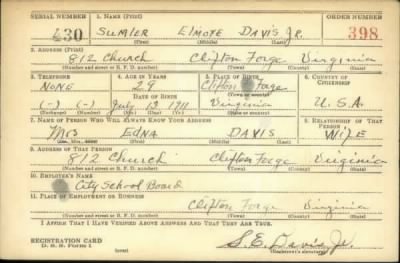 SERIAL NUMBER 1. NAME (Print) ORDER NUMBER
430 SUMLER Elmore DAVIS JR. 398
(First) (Middle) (Last)
2. ADDRESS (Print)
812 Church Clifton Forge Virginia
(Number and street or R. F. D. number) (Town) (County) (State)
3. TELEPHONE 4. AGE IN YEARS 5. PLACE OF BIRTH 6. COUNTRY OF CITIZENSHIP
NONE 29 Clifton Forge
DATE OF BIRTH
(-) (-) July 13 1911 Virginia U.S.A.
7. NAME OF PERSON WHO WILL ALWAYS KNOW YOUR ADDRESS 8. RELATIONSHIP OF THAT PERSON
Mrs EDNA DAVIS WIFE
(First) (Middle) (Last)
9. ADDRESS OF THAT PERSON
812 Church Clifton Forge Virginia
(Number and street or R. F. D. number) (Town) (County) (State)
10. EMPLOYER'S NAME
City School Board
11. PLACE OF EMPLOYMENT OR BUSINESS
Clifton Forge Virginia
(Number and street or R. F. D. number) (Town) (County) (State)
I AFFIRM THAT I HAVE VERIFIED ABOVE ANSWERS AND THAT THEY ARE TRUE.
REGISTRATION CARD
D. S. S. Form 1 (over) S. E. Davis Jr.
(Registrant's signature)